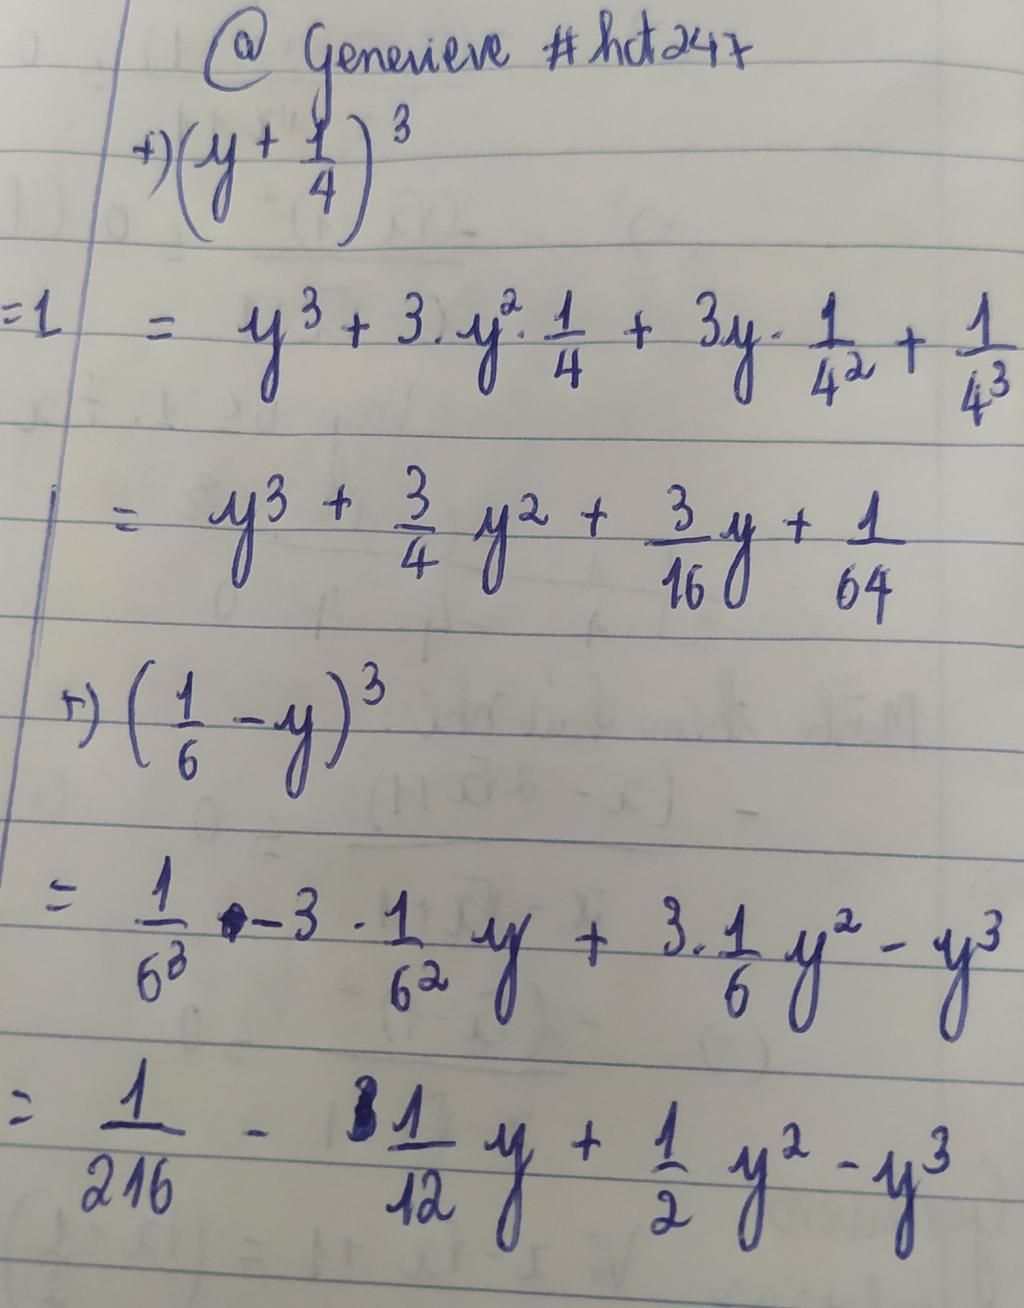 @ Genevieve #hct247
+) (y + 1/4)^3
=1
= y^3 + 3. y^2. 1/4 + 3y. 1/4^2 + 1/4^3
= y^3 + 3/4 y^2 + 3/16 y + 1/64
+) (1/6 - y)^3
= 1/6^3 - 3 . 1/6^2 y + 3. 1/6 y^2 - y^3
= 1/216 - 1/12 y + 1/2 y^2 - y^3